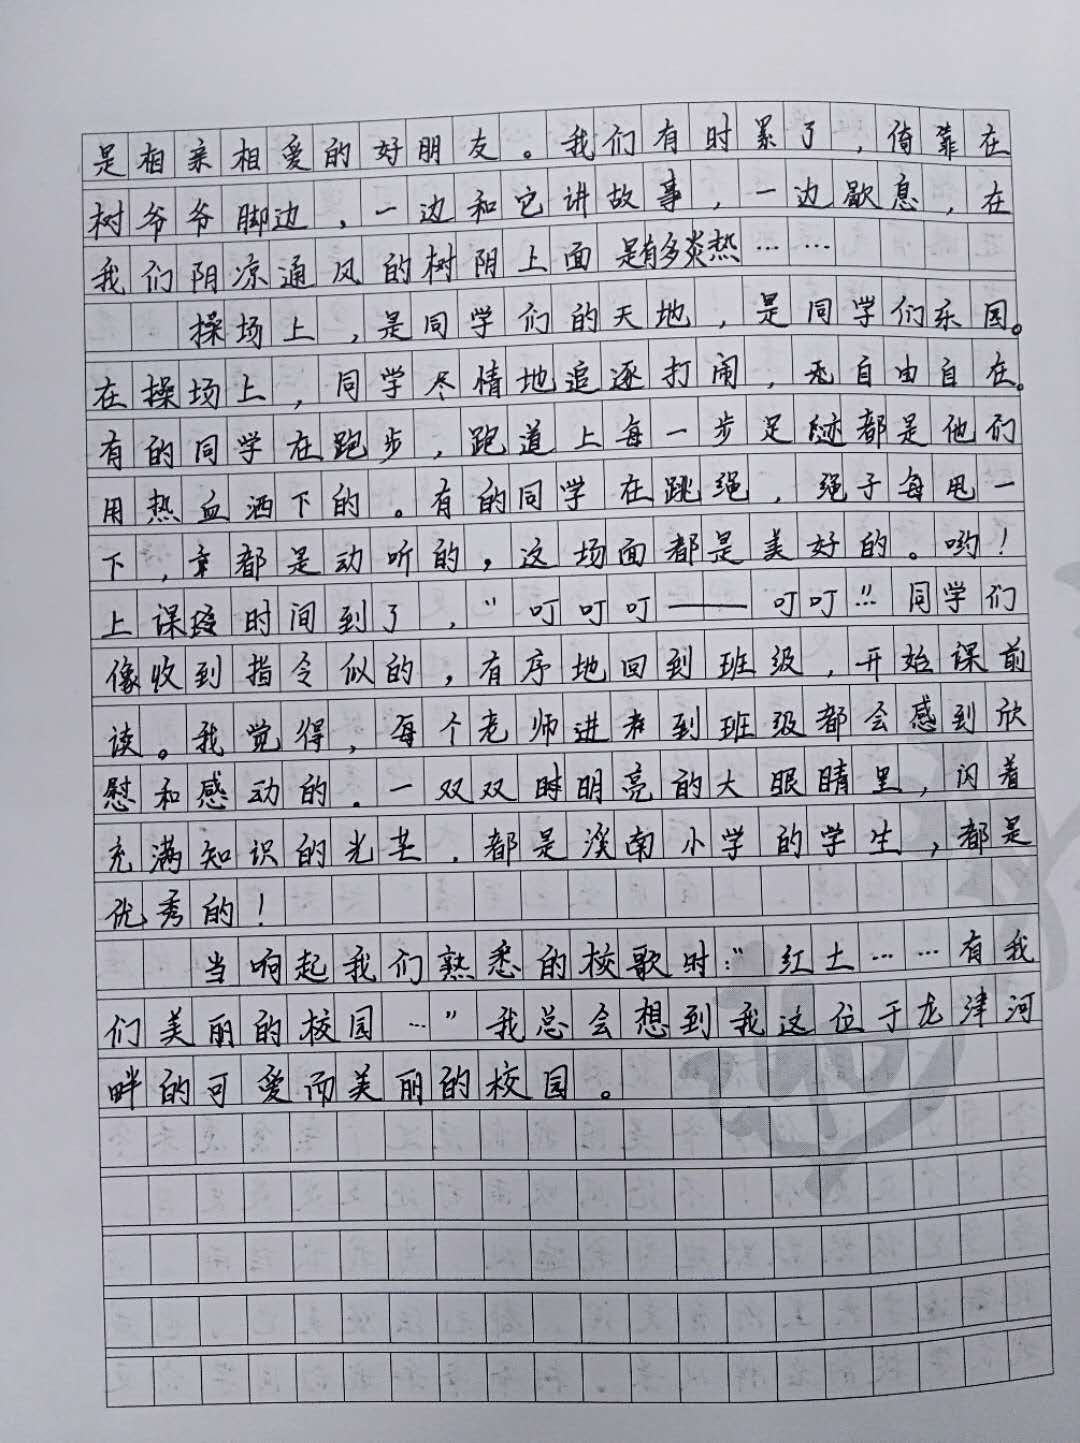 是相亲相爱的好朋友。我们有时累了，倚靠在
树爷爷脚边，一边和它讲故事，一边歇息，在
我们阴凉通风的树阴上面是有多炎热……
操场上，是同学们的天地，是同学们乐园。
在操场上，同学尽情地追逐打闹，无自由自在。
有的同学在跑步，跑道上每一步足迹都是他们
用热血洒下的。有的同学在跳绳，绳子每甩一
下，章都是动听的，这场面都是美好的。哟！
上课时间到了，“叮叮叮——叮叮！”同学们
像收到指令似的，有序地回到班级，开始课前
读。我觉得，每个老师进来到班级都会感到欣
慰和感动的。一双双时明亮的大眼睛里，闪着
充满知识的光芒，都是溪南小学的学生，都是
优秀的！
当响起我们熟悉的校歌时：“红土……有我
们美丽的校园…”我总会想到我这位于龙津河
畔的可爱而美丽的校园。